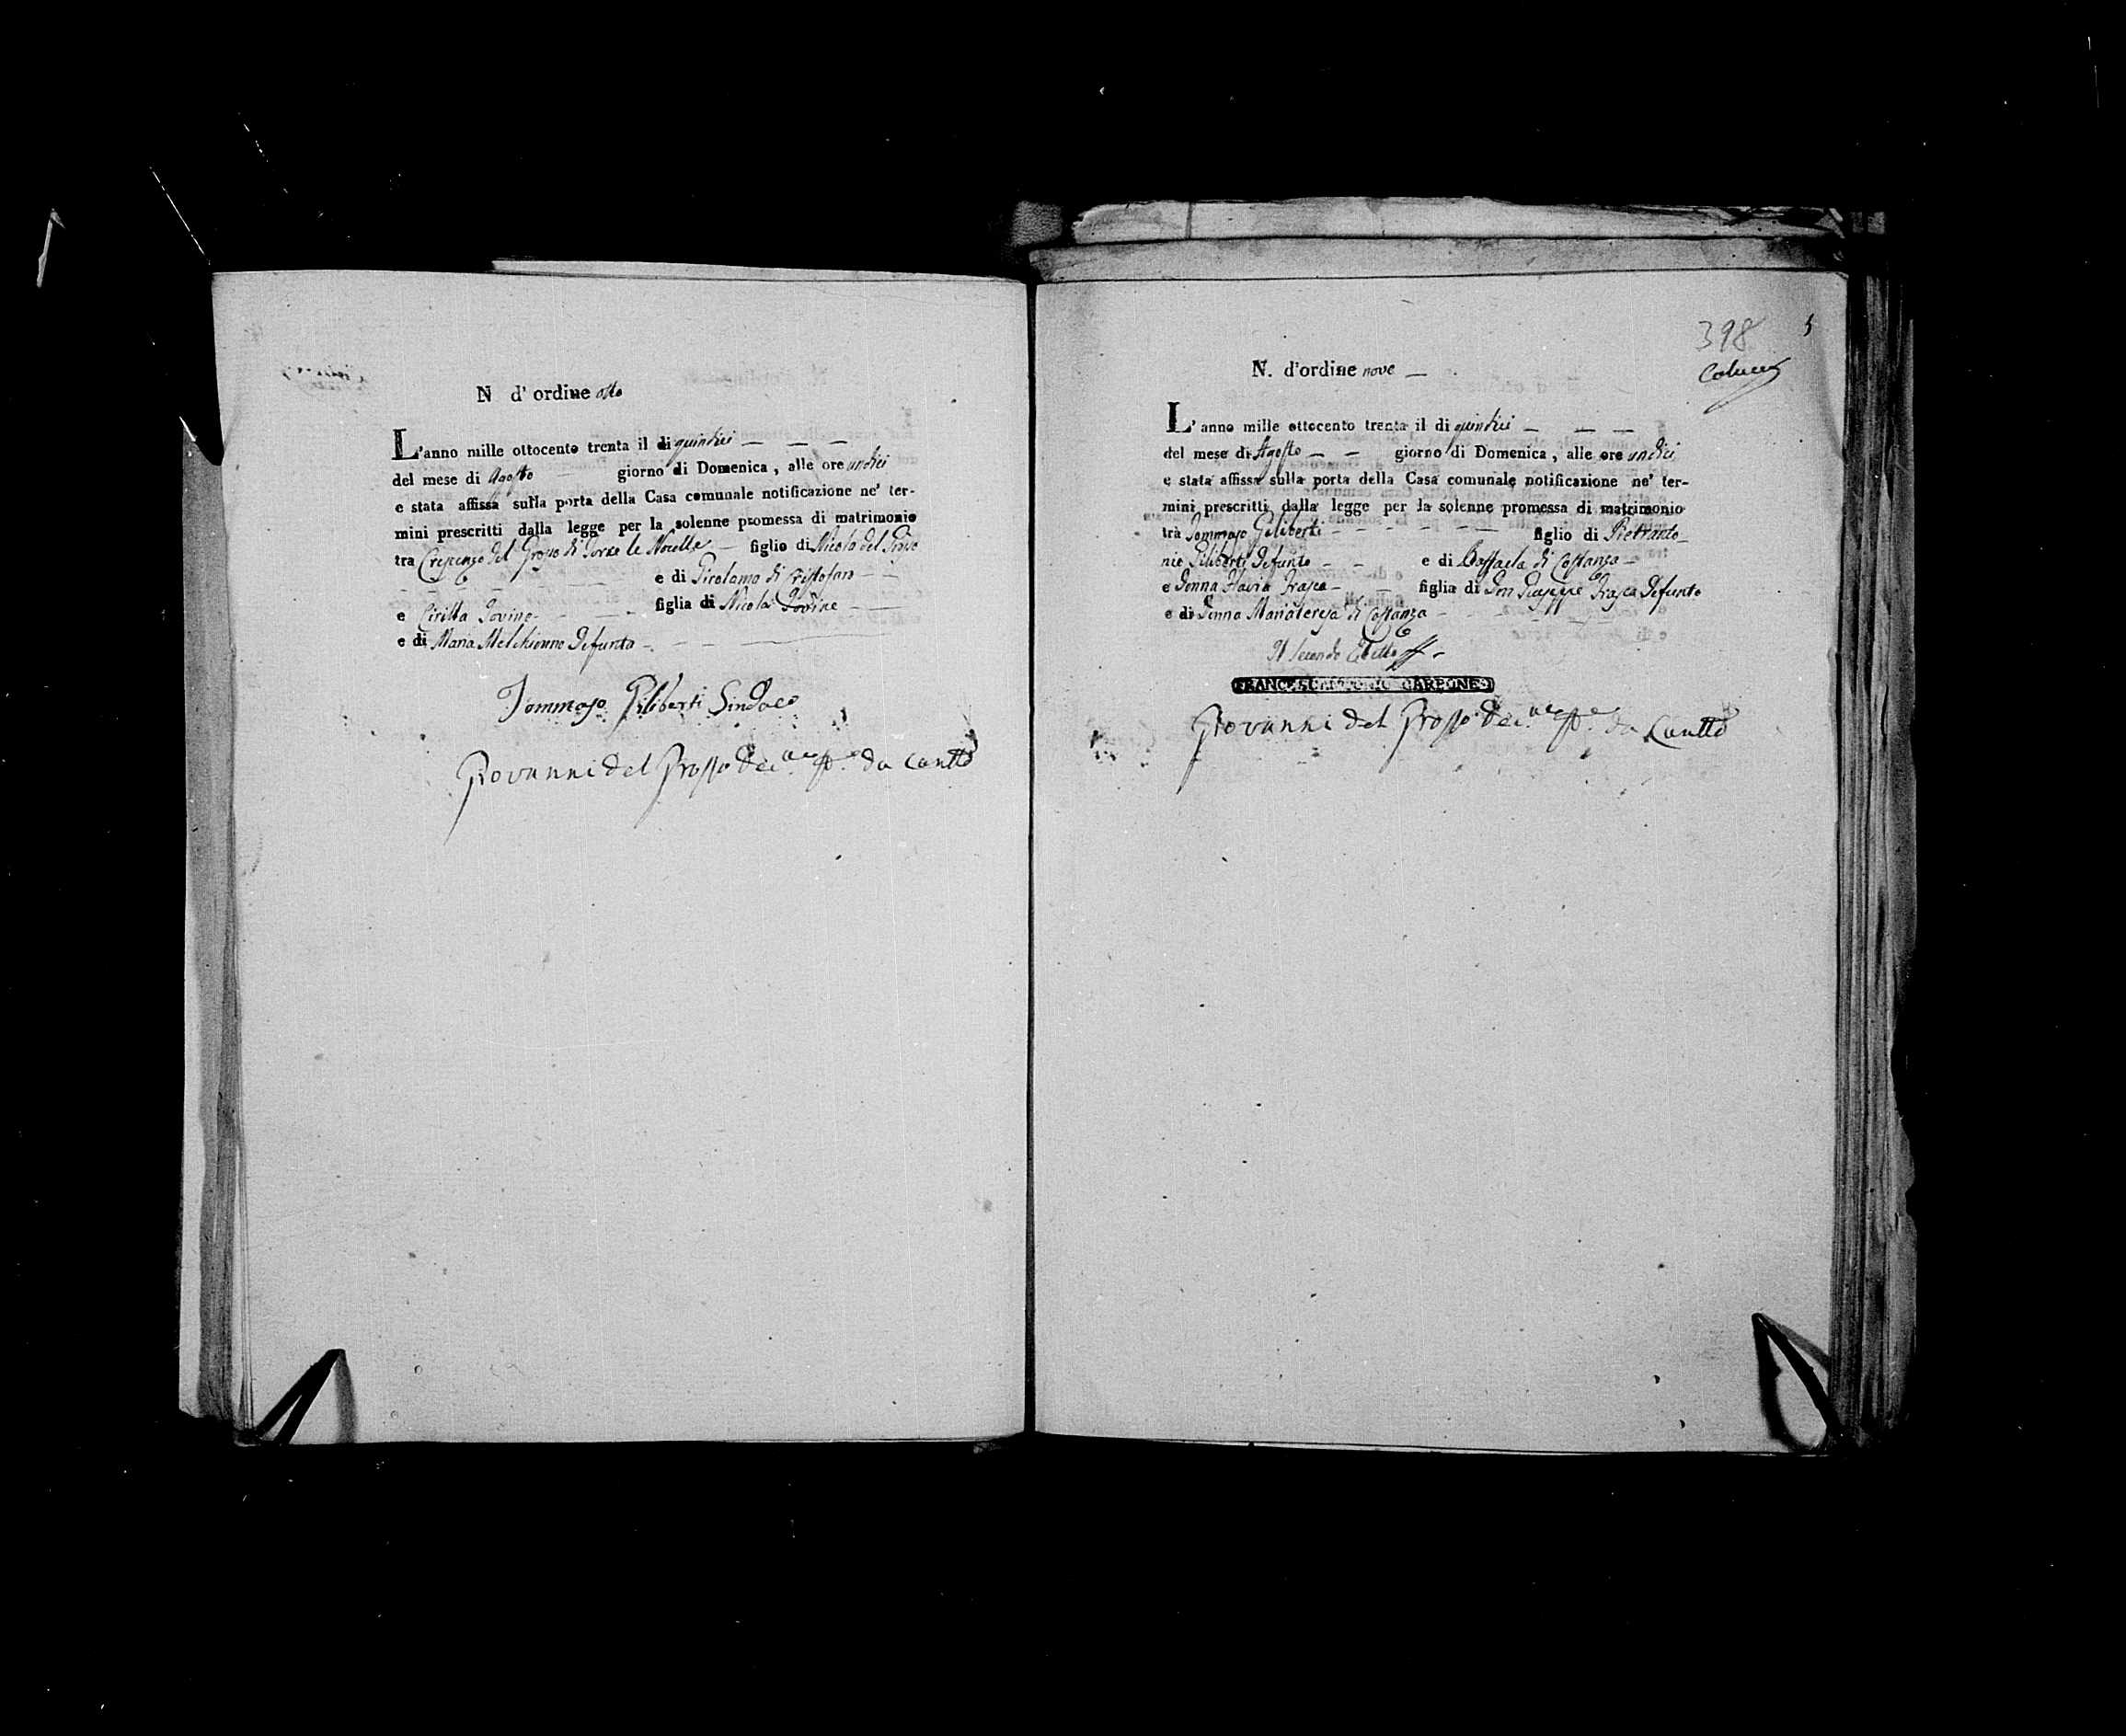 N d' ordine otto
L'anno mille ottocento trenta il di quindici
del mese di Agosto giorno di Domenica, alle ore undici
e stata affissa sulla porta della Casa comunale notificazione ne' ter-
mini prescritti dalla legge per la solenne promessa di matrimonio
tra Crescenzo del Grosso di Torre le Nocelle figlio di Nicola del Grosso
e di Girolama di Cristofaro
e Cirilla Iovine figlia di Nicola Iovine
e di Maria Melchionno Defunta
Tommaso Giliberti Sindaco
Giovanni del Grosso da
398
5
Colucci
N. d'ordine nove
L'anno mille ottocento trenta il di quindici
del mese di Agosto giorno di Domenica, alle ore undici
e stata affissa sulla porta della Casa comunale notificazione ne' ter-
mini prescritti dalla legge per la solenne promessa di matrimonio
tra Tommaso Giliberti figlio di Pietranto-
nio Giliberti Defunto e di Raffaela di Costanzo
e Donna Flavia Frasca figlia di Don Giuseppe Frasca Defunto
e di Donna Mariateresa di Costanza
Il Secondo Eletto
FRANCESCANTONIO CARBONE
Giovanni del Grosso da